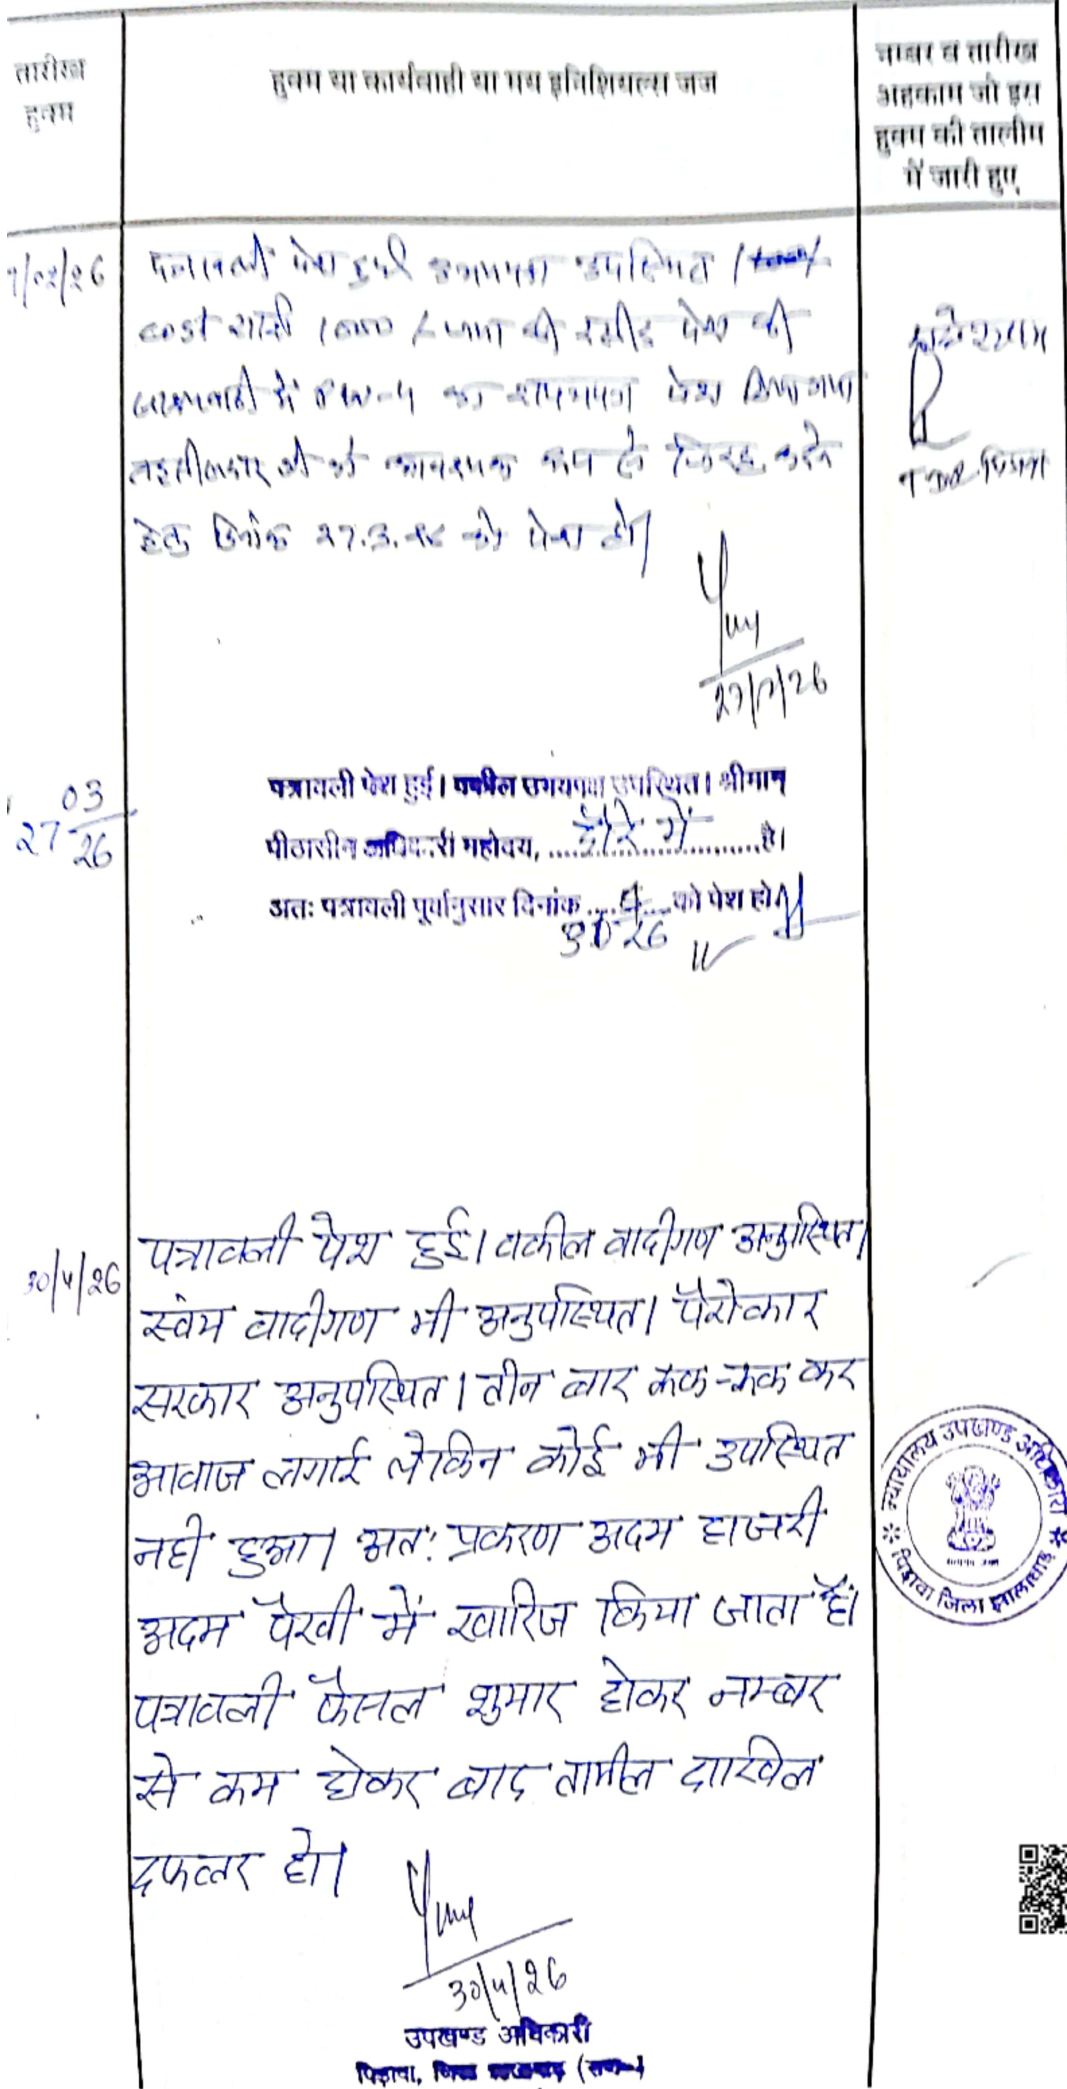 तारीख
हुक्म
हुक्म या कार्यवाही या मय इनिशियल्स जज
नम्बर व तारीख
अहकाम जो इस
हुक्म की तालीम
में जारी हुए
/02/26
पत्रावली पेश हुई उभयपक्ष उपस्थित।
cost राशी 1000/- जमा की रसीद पेश की
में PW-4 का शपथपत्र पेश किया गया
तहसीलदार जी को आवश्यक रूप से जिरह करने
हेतु दिनांक 27.3.26 को पेश हो।
TDR पिडावा
27/2/26
27 03/26
पत्रावली पेश हुई। वकील उभयपक्ष उपस्थित। श्रीमान्
पीठासीन अधिकारी महोदय, ....दौरे में....है।
अतः पत्रावली पूर्वानुसार दिनांक ....4.... को पेश हो।
30 26
30/4/26
पत्रावली पेश हुई। वकील वादीगण अनुपस्थित।
स्वंम वादीगण भी अनुपस्थित। पैरोकार
सरकार अनुपस्थित। तीन बार रूक-रूक कर
आवाज लगाई लेकिन कोई भी उपस्थित
नही हुआ। अतः प्रकरण अदम हाजरी
अदम पैरवी में खारिज किया जाता है।
पत्रावली फैसल शुमार होकर नम्बर
से कम होकर बाद तामील दाखिल
दफ्तर हो।
30/4/26
उपखण्ड अधिकारी
पिड़ावा, जिला झालावाड़ (राज०)
न्यायालय उपखण्ड अधिकारी
पिड़ावा जिला झालावाड़